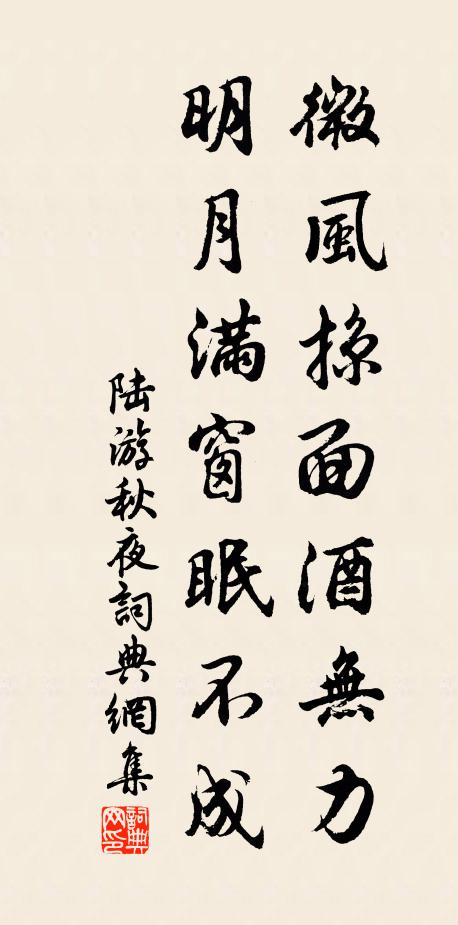 微風掠面酒無力
明月滿窗眠不成
陆游秋夜詞典網集
詞典网印